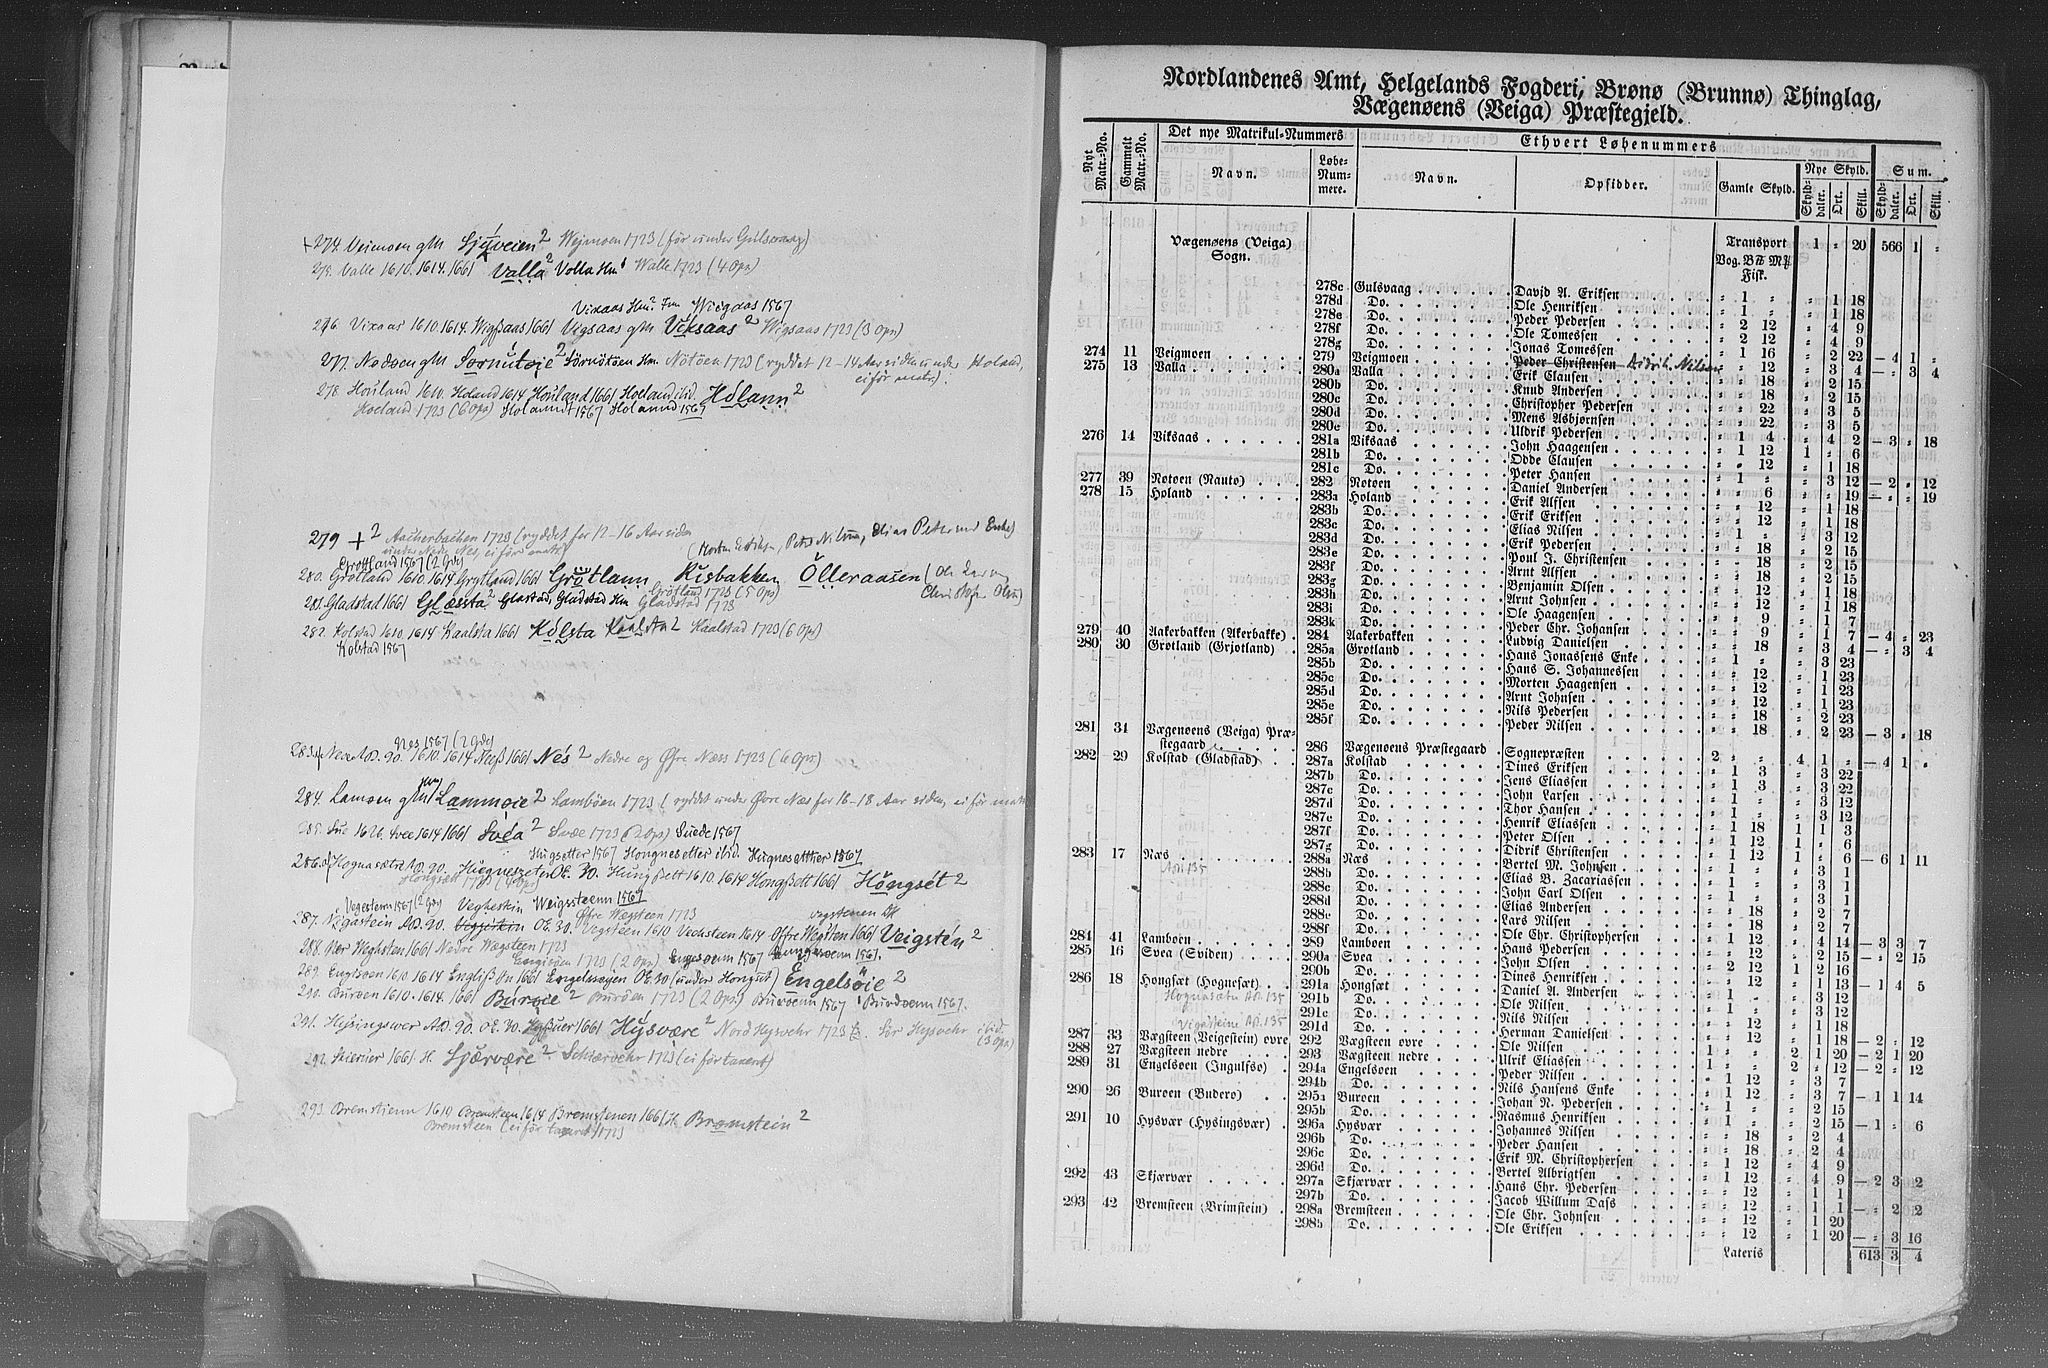 274. Veimoen gM Sjÿveien 2 Wejmoen 1723 (før under Gulsvaag)
275. Valle 1610. 1614. 1661 Valla 2 Volla Hm Walle 1723 (4 Ops)
Vixaas Hm. Wiegaas 1567
276. Vixaas 1610. 1614. Wigsaas 1661 Vigsaas gM Viksaas 2 Wigsaas 1723 (3 Ops)
277. Nodøen gM Sørnútøie 2 Sørnötöen Hm. Nötöen 1723 (ryddet 12-14 Aar siden under Holand, ei för matr).
278. Houland 1610. Holand 1614 Houland 1661 Holland ibid. Hólann 2
Holand 1723 (6 Ops) Holannd 1567 Holannd 1567
279 + 2 Aacherbachen 1723 (ryddet for 12-16 Aar siden
under Nedre Nes, ei före matr)
Grottland 1567 (2 Gde)
280. Grotland 1610. 1614 Grytland 1661 Grøtlann Risbakken Ölleraasen
Grötland 1723 (5 Ops)
281. Gladstad 1661 Glæssta 2 Glastad, Gladstad Hm Gladstad 1723
282. Kolstad 1610. 1614 Kaalsta 1661 Kólsta 2 Kaalstad 1723 (6 Ops)
Kolstad 1567
Nes 1567 (2 Gde)
283. 1610. 1614 Neß 1661 Nés 2 Nedre og Øfre Næss 1723 (6 Ops)
284. Lamøen gM Lammøie 2 Lamböen 1723 (ryddet under Øvre Næs for 16-18 Aar siden, ei för matr
285. Sue 1626. 1614 1661 Svéa 2 Svæ 1723 (2 Ops) Suede 1567
Hugsetter 1567 Hongnesetter ibid. Hugnesetther 1567
286. Hognasætre AB. 90. Hungßett 1610. 1614 Hongßett 1661 Höngsét 2
Vegestenn 1567 (2 Gde) Vegheskin Weigssteenn 1567
287. Vigastein AB. 90. OE. 30. Vegsteen 1610 Vechsteen 1614 Øffre Wegsten 1661 Veigstén 2
288. Nær Weghsten 1661 Nedre Wægsteen 1723
Engisöen 1723 (2 Ops) Engesøenn 1567
289. Engtsøen 1610. 1614 1661 OE 30 (under Hongset) Engelsöie 2
290. Burøen 1610. 1614. 1661 Burøie 2 Burøen 1723 (2 Ops) Burøenn 1567 Burdøenn 1567.
291. Hysingswer AB. 90. OE. 30. Hyßuer 1661 Hýsvære 2 Nord Hysvehr 1723 Sör Hysvehr ibid. (3 Ops)
292. Skierier 1661. H. Sjærvære 2 Schiærvehr 1723 (ei för taxert)
293 Bremstienn 1610 Bremsteen 1614 Bremstenen 1661. H. Bræmstein 2
Bremsteen (ei för taxeret) 1723
Nordlandenes Amt, Helgelands Fogderi, Brønø (Brunnø) Thinglag,
Vægenøens (Veiga) Præstegjeld.
Nyt Matr.-No. Gammelt Matr.-No. Det nye Matrikul-Nummers Ethvert Løbenummers
Navn. Løbe-Nummere. Navn. Opsidder. Gamle Skyld. Nye Skyld. Sum.
Skylddaler. Ort. Skill. Skylddaler. Ort. Skill.
Vægenøens (Veiga) Sogn. Transport 1 " 20 566 1 "
Vog. B℔ M℔ Fisk.
278c Gulsvaag David A. Eriksen " 1 " " 1 18
278d Do. Ole Henriksen " 1 " " 1 18
278e Do. Peder Pedersen " 2 12 " 4 9
278f Do. Ole Tomessen " 2 12 " 4 9
278g Do. Jonas Tomessen " 1 16 " 2 22 — 4 1 "
274 11 Veigmoen 279 Veigmoen Peder Christensen Didrik Nilsen " " 12 " 3 4 — " 3 4
275 13 Valla 280a Valla Erik Clausen " " 18 " 2 15
280b Do. Knud Andersen " " 18 " 2 15
280c Do. Christopher Pedersen " " 22 " 3 5
280d Do. Mens Asbjørnsen " " 22 " 3 5
280e Do. Uldrik Pedersen " 1 4 " 4 2 — 3 " 18
276 14 Viksaas 281a Viksaas John Haagensen " 1 12 1 " 6
281b Do. Odde Clausen " " 12 " 1 18
281c Do. Peter Hansen " 1 " " 3 12 — 2 " 12
277 39 Notøen (Nautø) 282 Notøen Daniel Andersen " " 6 " " 19 — " " 19
278 15 Holand 283a Holand Erik Alfsen " " 12 " 1 18
283b Do. Erik Eriksen " " 12 " 1 18
283c Do. Elias Nilsen " 1 " " 3 12
283d Do. Erik Pedersen " " 18 " 2 15
283e Do. Poul J. Christensen " " 18 " 2 15
283f Do. Arnt Alfsen " " 18 " 2 15
283g Do. Benjamin Olsen " " 12 " 1 18
283h Do. Arnt Johnsen " " 12 " 1 18
283i Do. Ole Haagensen " " 9 " 1 7
283k Do. Peder Chr. Johansen " " 9 " 1 7 — 4 " 23
279 40 Aakerbakken (Akerbakke) 284 Aakerbakken Ludvig Danielsen " " 18 " 3 4 — " 3 4
280 30 Grøtland (Grjotland) 285a Grøtland Hans Jonassens Enke " 1 " " 3 23
285b Do. Hans S. Johannessen " " 12 " 1 23
285c Do. Morten Haagensen " " 12 " 1 23
285d Do. Arnt Johnsen " " 12 " 1 23
285e Do. Nils Pedersen " " 18 " 2 23
285f Do. Peder Nilsen " " 18 " 2 23 — 3 " 18
281 34 Vægenøens (Veiga) Præstegaard 286 Vægenøens Præstegaard Sognepræsten 2 " " 4 1 " — 4 1 "
282 29 Kolstad (Gladstad) 287a Kolstad Dines Eriksen " 1 3 " 3 22
287b Do. Jens Eliassen " 1 3 " 3 22
287c Do. John Larsen " 1 " " 3 12
287d Do. Thor Hansen " 1 " " 3 12
287e Do. Henrik Eliassen " 1 18 1 1 3
287f Do. Peter Olsen " 1 12 1 " 6
287g Do. Didrik Christensen " 1 12 1 " 6 — 6 1 11
283 17 Næs 288a Næs Bertel M. Johnsen " 1 " " 3 1
288b Do. Elias B. Zacariassen " 1 " " 3 1
288c Do. John Carl Olsen " 1 " " 3 1
288d Do. Elias Andersen " " 18 " 2 7
288e Do. Lars Nilsen " " 18 " 2 7
288f Do. Ole Chr. Christophersen " 1 12 " 4 14 — 3 3 7
284 41 Lambøen 289 Lambøen Hans Pedersen " " 12 " 2 15 — " 2 15
285 16 Svea (Sviden) 290a Svea John Olsen " 2 12 1 2 16
290b Do. Dines Henriksen " " 12 " 1 13 — 1 4 5
286 18 Hongsæt (Hognesæt) 291a Hongsæt Daniel A. Andersen " 1 " " 3 12
291b Do. Ole Nilsen " 1 " " 3 12
291c Do. Nils Nilsen " " 12 " 1 18
291d Do. Herman Danielsen " " 12 " 1 18 — 2 " 12
287 33 Vægsteen (Veigestein) øvre 292 Vægsteen øvre Ole Nilsen 1 " " 2 1 20 — 2 1 20
288 27 Vægsteen nedre 293 Vægsteen nedre Ulrik Eliassen 1 " " 2 " 12 — 2 " 12
289 31 Engelsøen (Ingulfsø) 294a Engelsøen Peder Nilsen " 1 12 " 3 7
294b Do. Nils Hansens Enke " 1 12 " 3 7 — 1 1 14
290 26 Burøen (Buderø) 295a Burøen Johan N. Pedersen " 1 " " 2 15
295b Do. Rasmus Henriksen " 1 " " 2 15 — 1 " 6
291 10 Hysvær (Hysingsvær) 296a Hysvær Johannes Nilsen " " 18 " 2 4
296b Do. Peder Hansen " " 18 " 2 4
296c Do. Erik M. Christophersen " 1 12 " 4 9
296d Do. Bertel Albrigtsen " 1 12 " 4 9 — 2 3 2
292 43 Skjærvær 297a Skjærvær Hans Chr. Pedersen " " 12 " 1 1
297b Do. Jacob Willum Dass " " 12 " 1 1 — " 2 2
293 42 Bremsteen (Brimstein) 298a Bremsteen Ole Chr. Johnsen " " 12 " 1 20
298b Do. Ole Eriksen " " 12 " 1 20 — " 3 16
Lateris 613 3 4